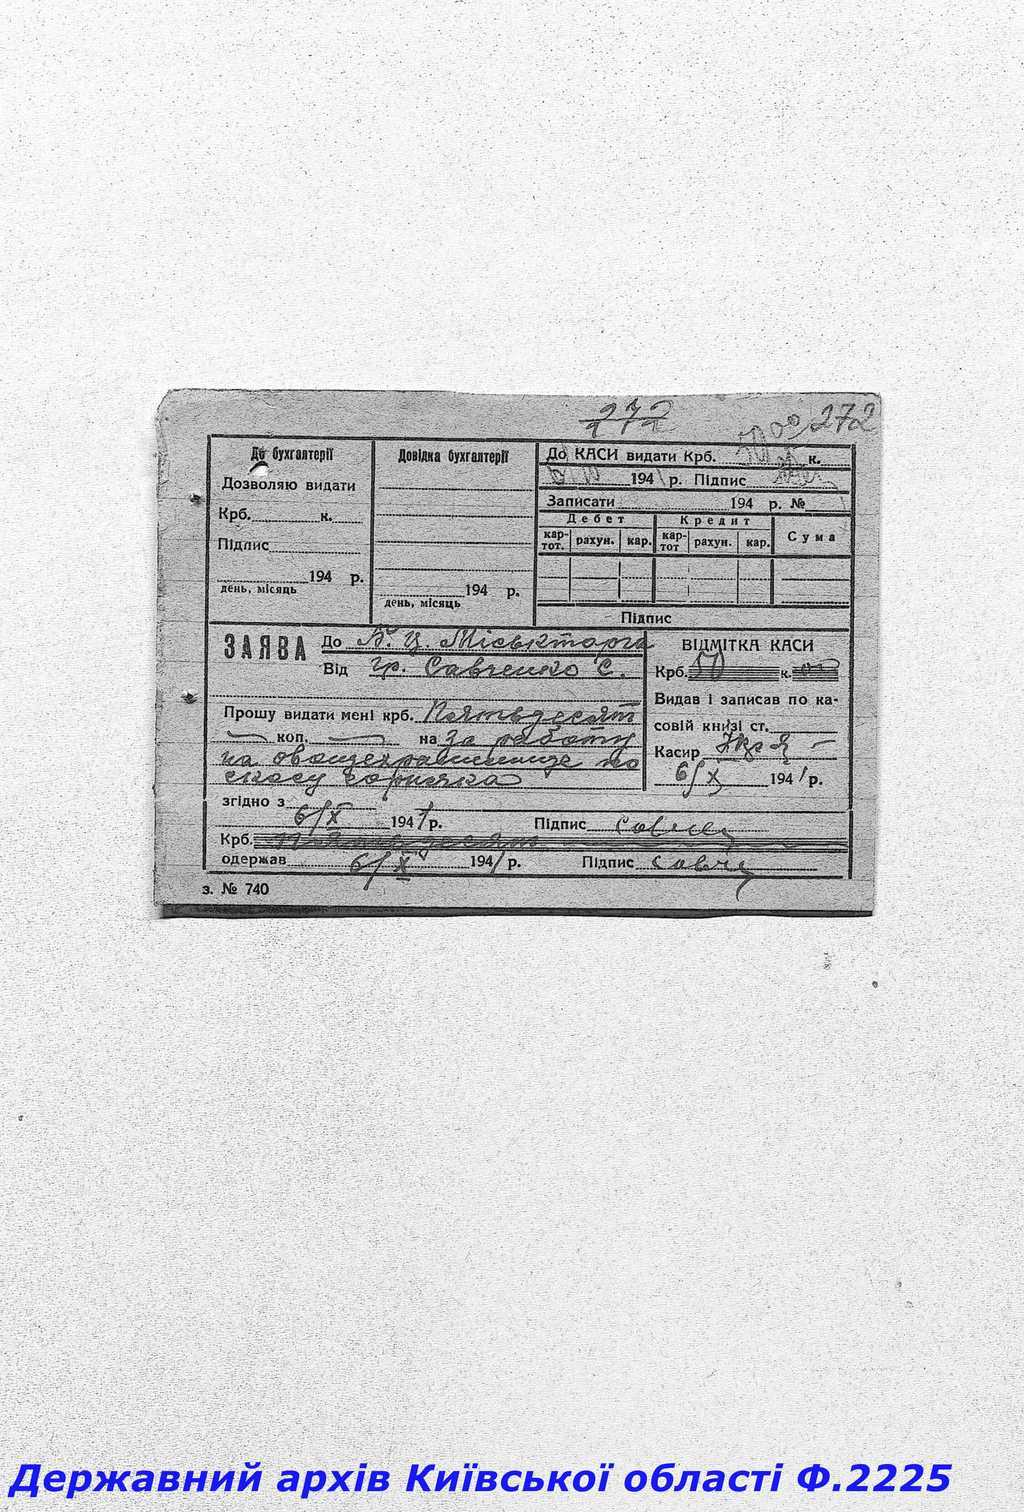 272
272
До бухгалтерії
Дозволяю видати
Крб. к.
Підпис
194 р.
день, місяць
Довідка бухгалтерії
194 р.
день, місяць
До КАСИ видати Крб. 50 00 к.
194 р. Підпис
Записати 194 р. №
Дебет Кредит Сума
кар-тот. рахун. кар. кар-тот рахун. кар.
Підпис
ЗАЯВА До Б. Ц. Міськторга
Від гр. Савченко С.
Прошу видати мені крб. Пятьдесят
коп. на за работу
на овощехранилище по
згідно з
6/X 1941 р. Підпис
Крб. Пятьдесят
одержав 6/X 1941 р. Підпис
ВІДМІТКА КАСИ
Крб. 50 к. 00
Видав і записав по ка-
совій книзі ст.
Касир
6/X 1941 р.
з. № 740
Державний архів Київської області Ф.2225